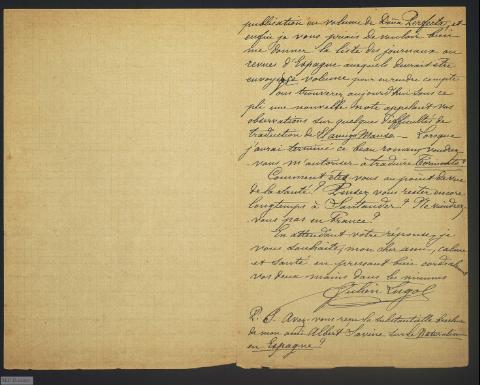 publication en volume de Doña Perfecta, et
enfin je vous priais de vouloir bien
me donner la liste des journaux ou
revues d'Espagne auxquels devrait être
envoyé ce volume pour en rendre compte
Vous trouverez aujourd'hui sous ce
pli une nouvelle note appelant vos
observations sur quelques difficultés de
traduction de El amigo Manso. — Lorsque
j'aurai terminé ce beau roman, voudrez
vous m'autoriser à traduire Tormento?
Comment êtes vous au point de vue
de la santé? Pensez vous rester encore
longtemps à Santander? Ne viendrez
vous pas en France?
En attendant votre réponse, je
vous souhaite, mon cher ami, calme
et santé en pressant bien cordialement
vos deux mains dans les miennes
Julien Lugol
P. S. Avez-vous reçu la substantielle brochure
de mon ami Albert Savine sur le Naturalisme
en Espagne?